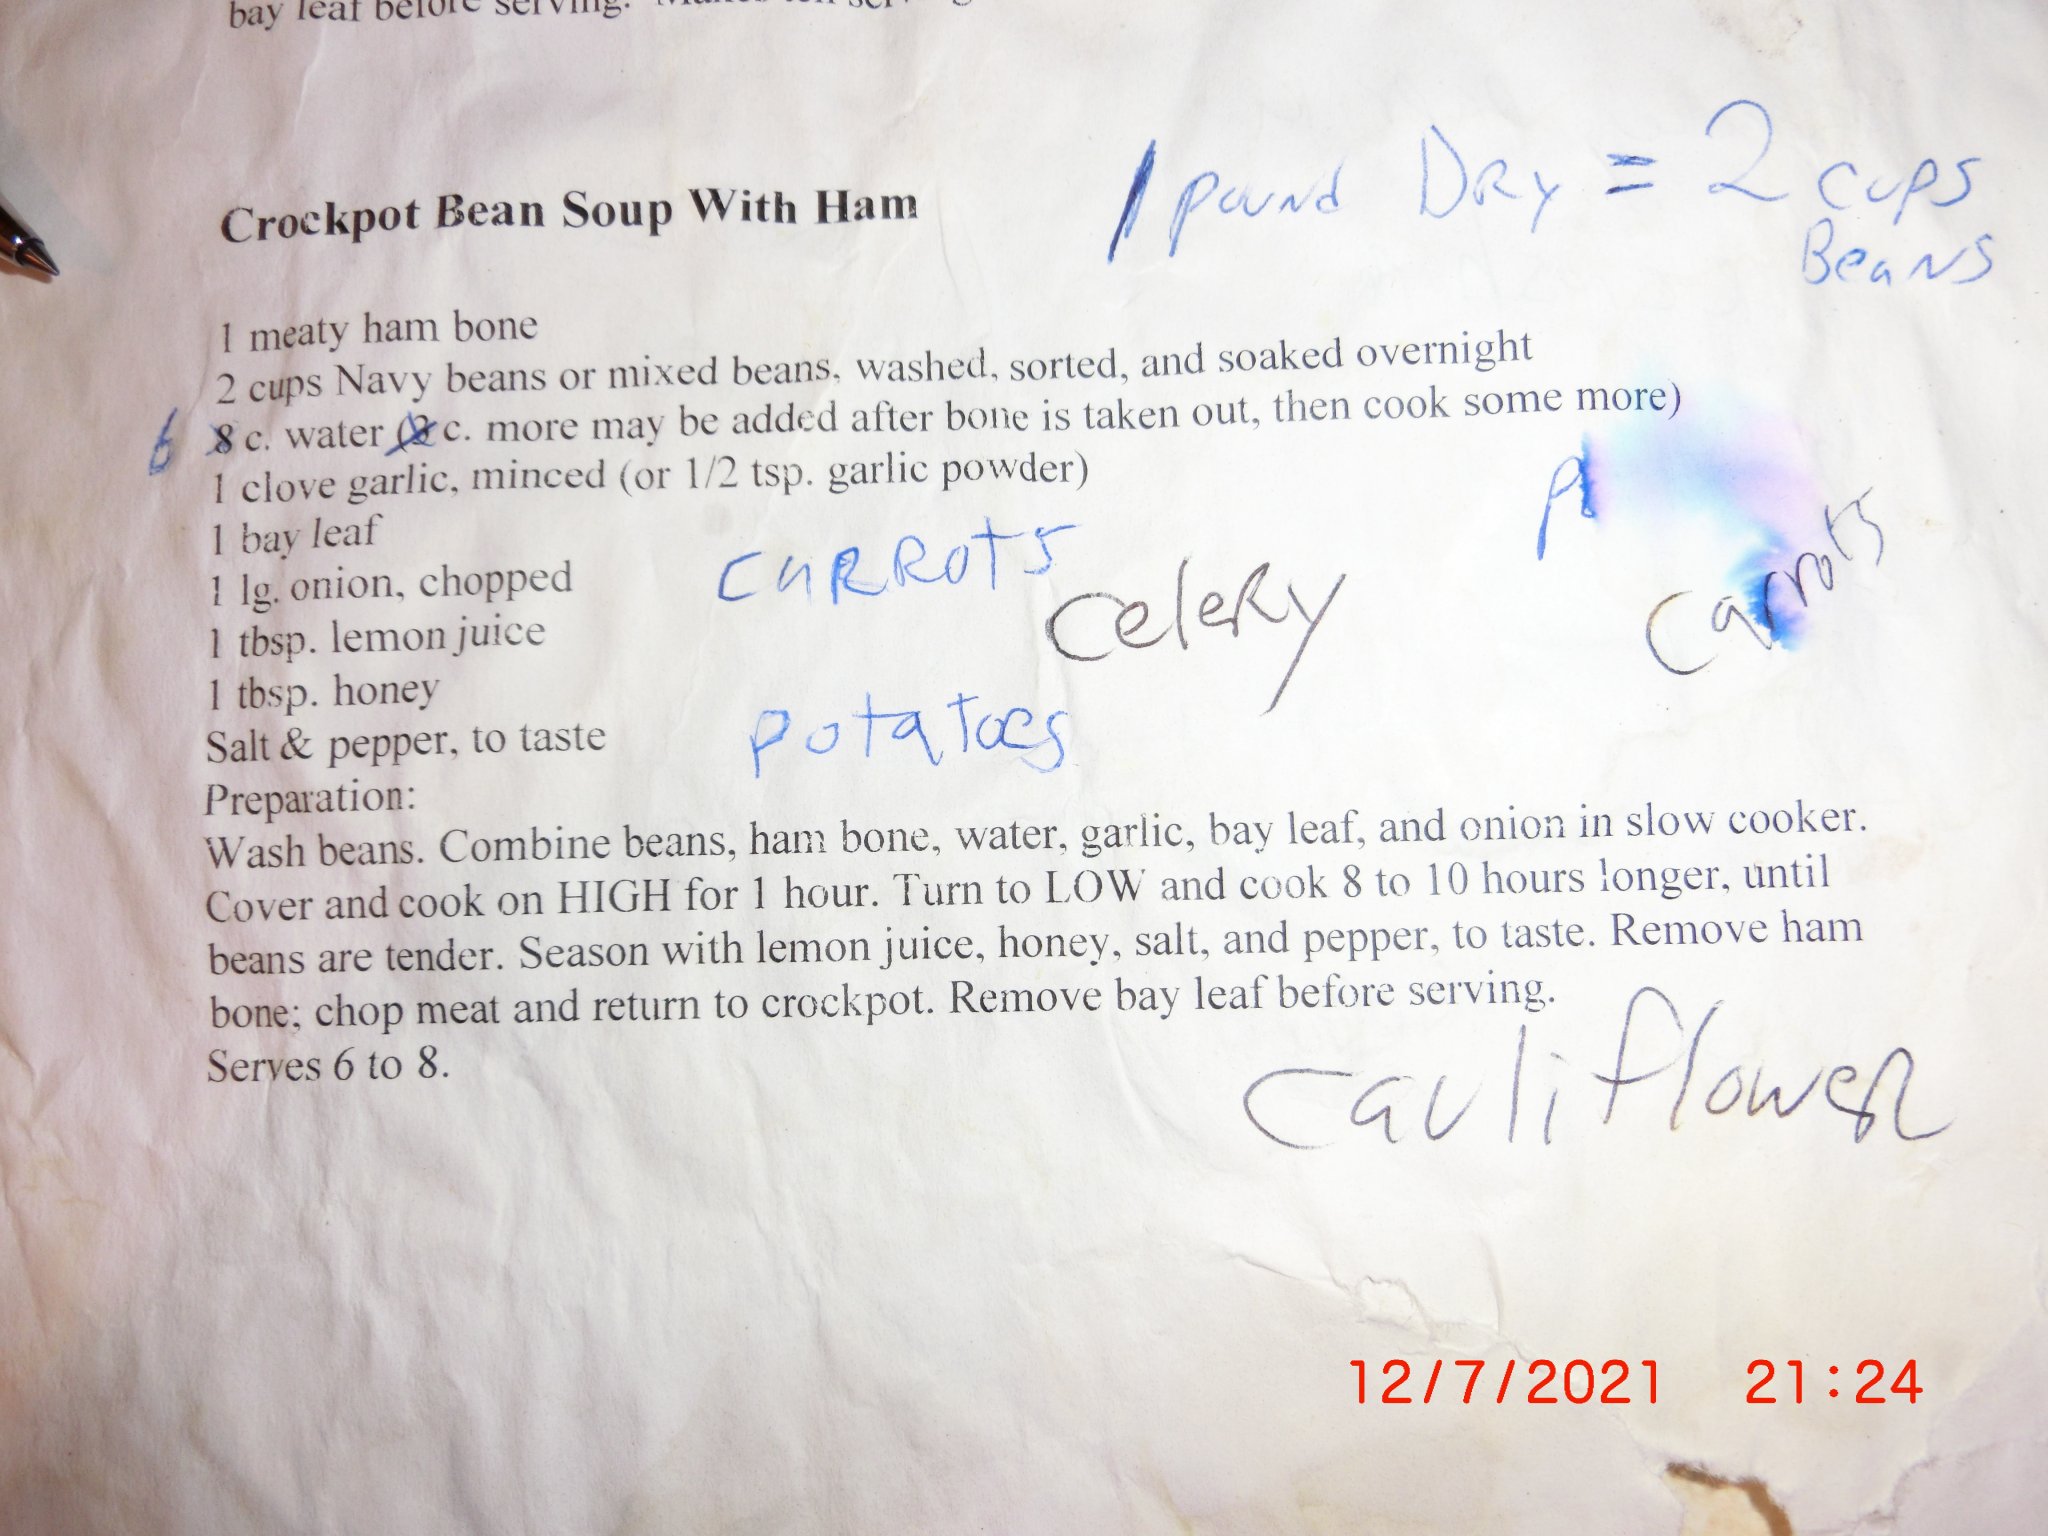 bay leaf before serving.
1 pound Dry = 2 cups
Beans
Crockpot Bean Soup With Ham
1 meaty ham bone
2 cups Navy beans or mixed beans, washed, sorted, and soaked overnight
6 8 c. water ( c. more may be added after bone is taken out, then cook some more)
1 clove garlic, minced (or 1/2 tsp. garlic powder)
1 bay leaf
1 lg. onion, chopped
1 tbsp. lemon juice
1 tbsp. honey
Salt & pepper, to taste
CARROTS
Celery
Carrots
Potatoes
Preparation:
Wash beans. Combine beans, ham bone, water, garlic, bay leaf, and onion in slow cooker.
Cover and cook on HIGH for 1 hour. Turn to LOW and cook 8 to 10 hours longer, until
beans are tender. Season with lemon juice, honey, salt, and pepper, to taste. Remove ham
bone; chop meat and return to crockpot. Remove bay leaf before serving.
Serves 6 to 8.
Cauliflower
12/7/2021 21:24